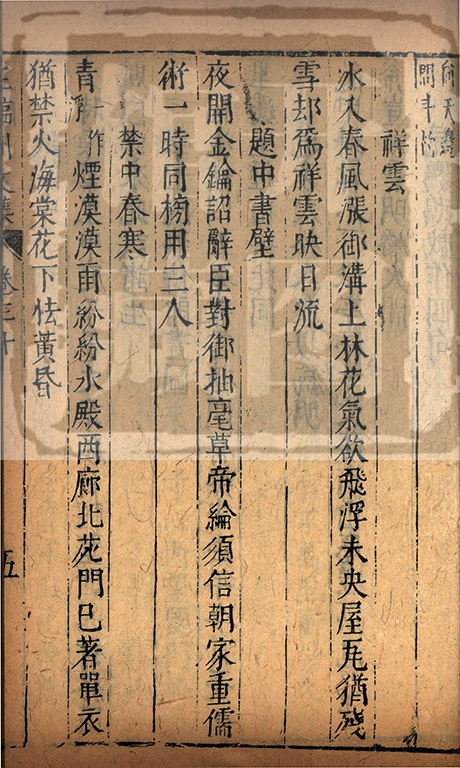 祥雲
冰入春風漲御溝上林花氣欲飛浮未央屋瓦猶殘
雪却爲祥雲映日流
題中書壁
夜開金鑰詔辭臣對御抽毫草帝綸須信朝家重儒
術一時同榜用三人
禁中春寒
青 作煙漠漠雨紛紛水殿西廊北苑門巳著單衣
猶禁火海棠花下怯黃昏
卷三十
五